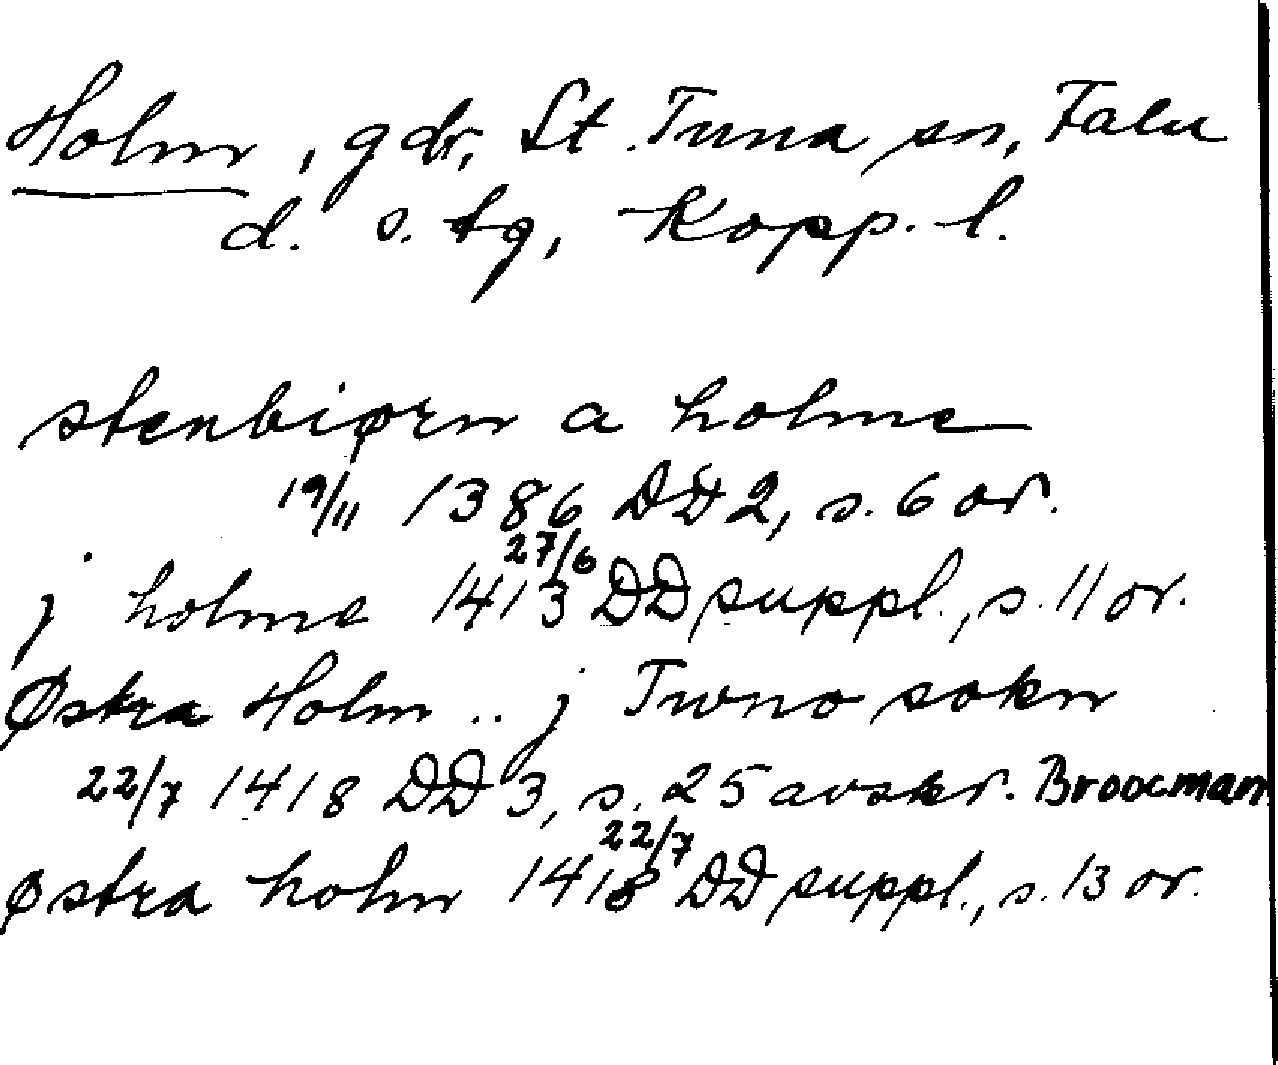 Holm, gdr, St. Tuna sn, Falu
d. s. tg, Kopp. l.
stenbiørn a holme
19/11 1386 DD 2, s. 6 or.
j holme 27/6 1413 DD suppl., s. 11 or.
Østra Holm .. j Twno sokn
22/7 1418 DD 3, s. 25 avskr. Broocman
østra holm 22/7 1418 DD suppl., s. 13 or.